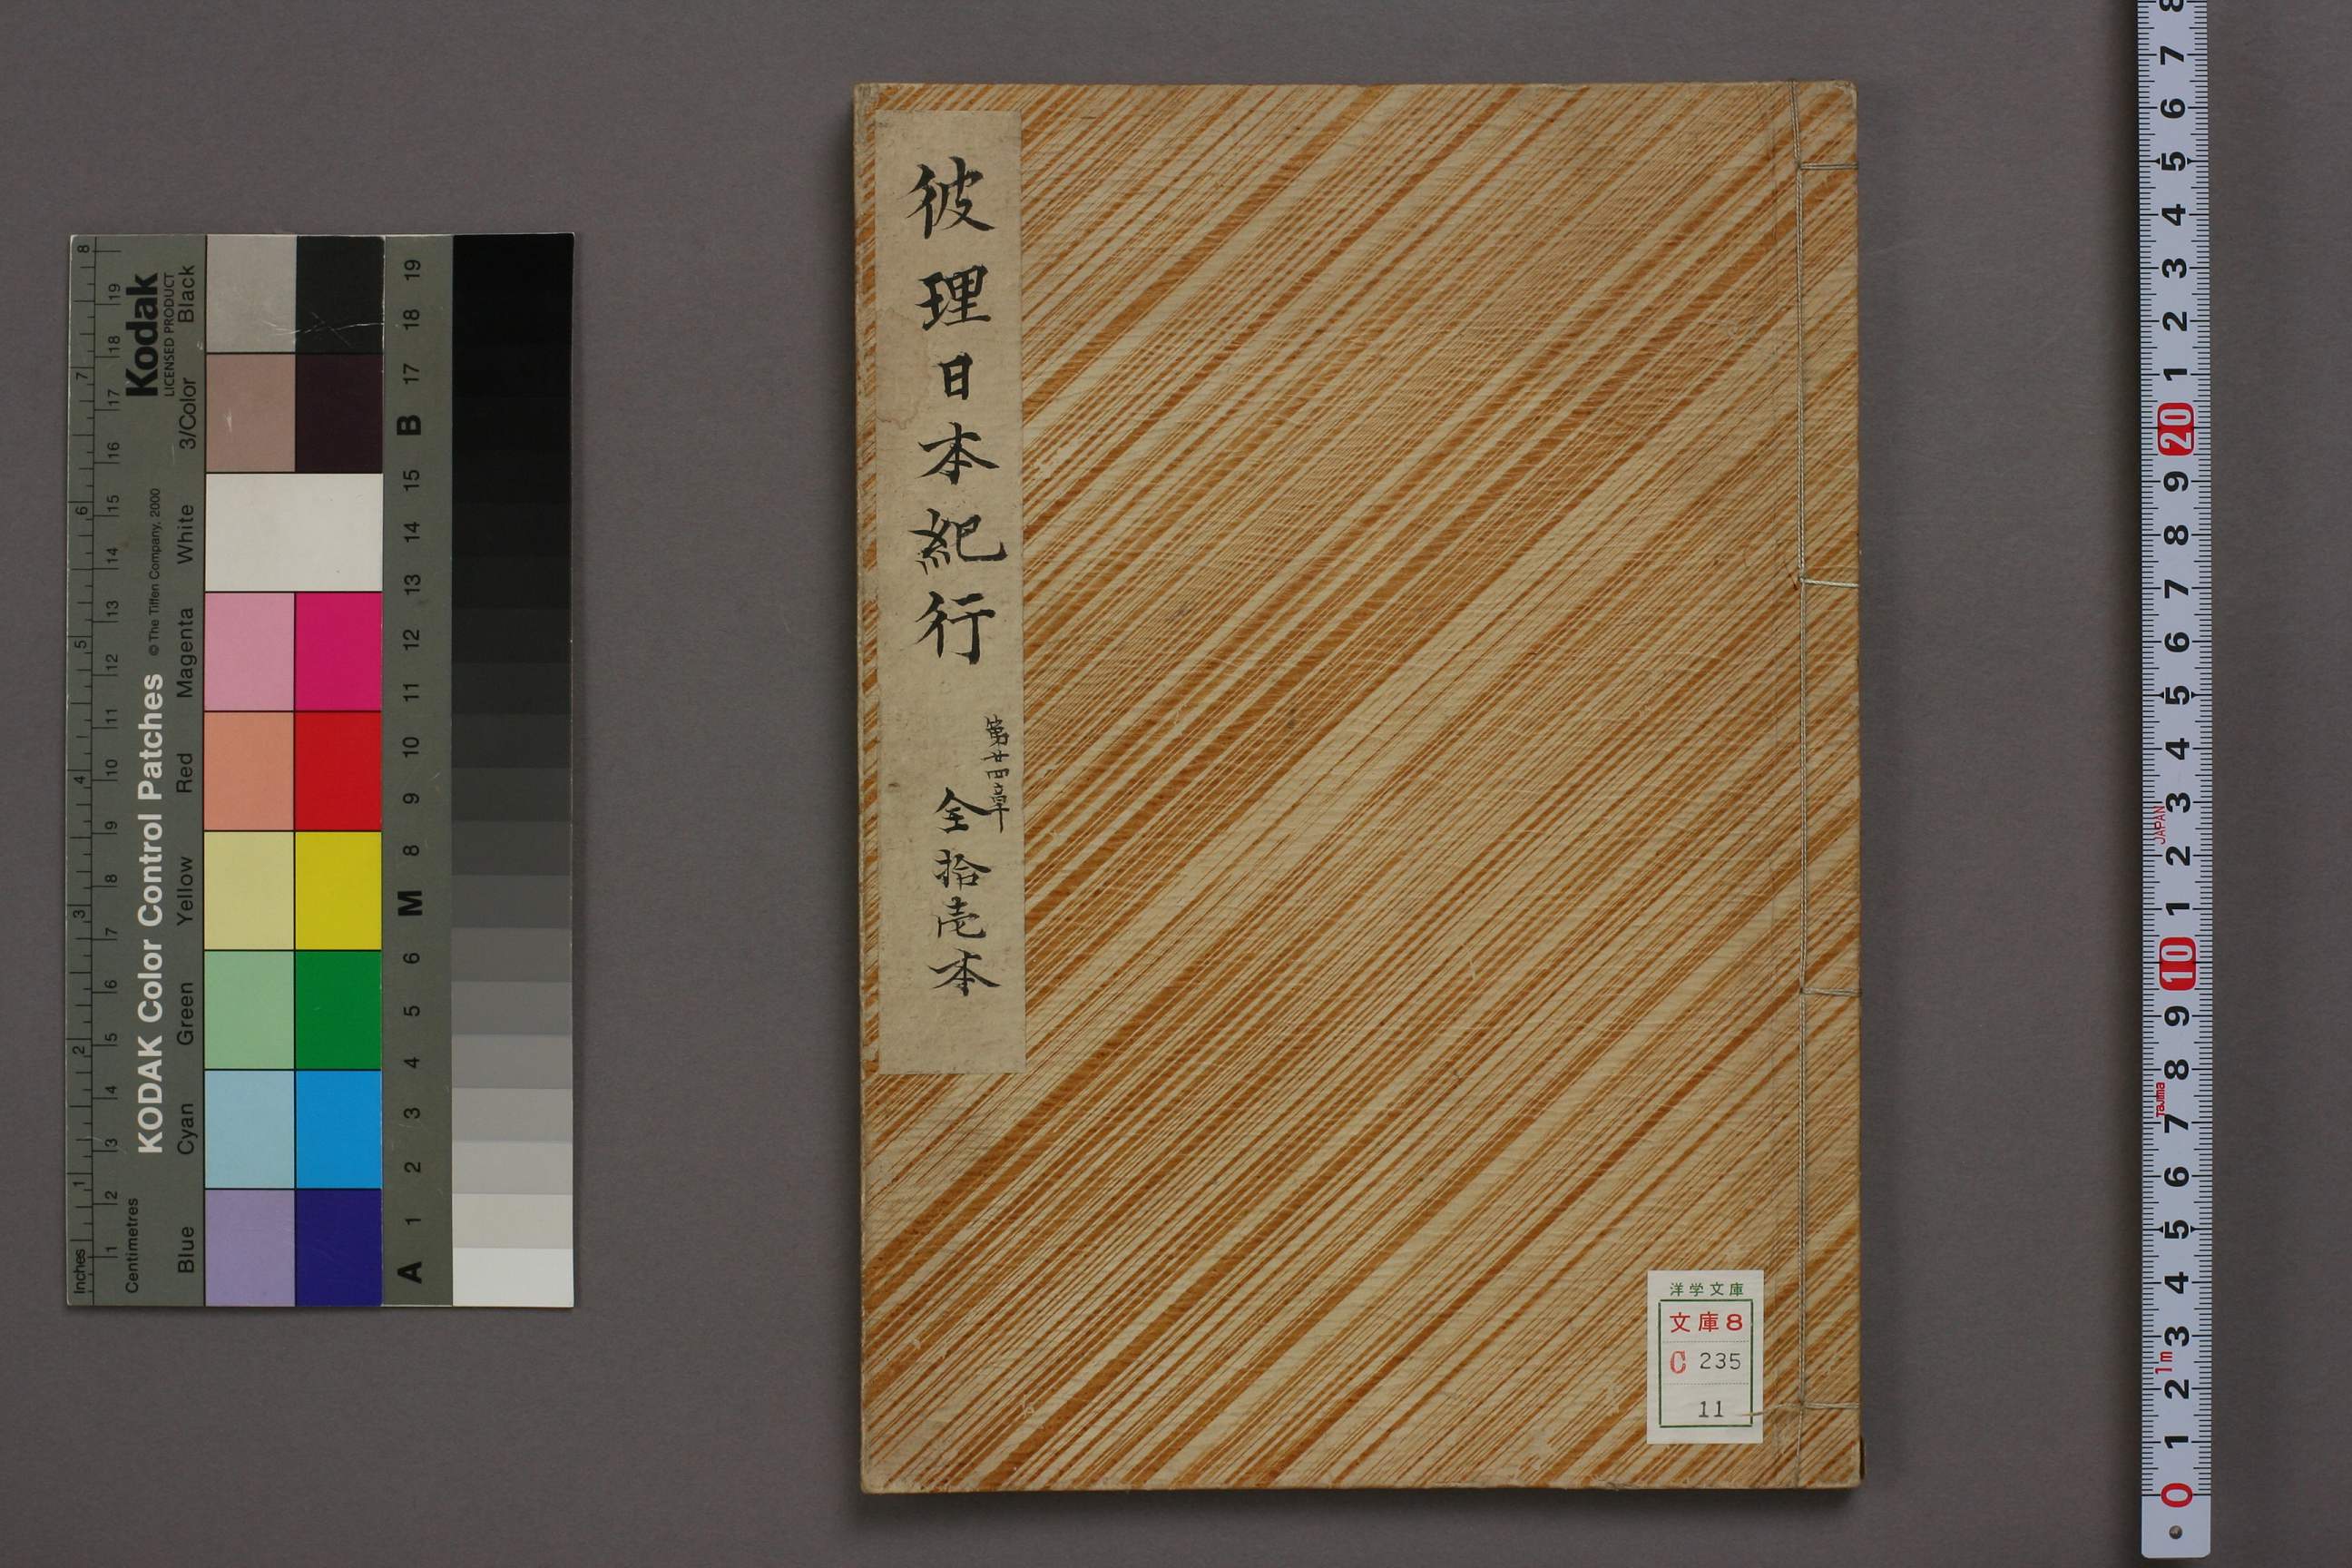 彼理日本紀行
第廿四章
全拾壱本
洋学文庫
文庫8
C 235
11
KODAK Color Control Patches
© The Tiffen Company, 2000
Kodak
LICENSED PRODUCT
Inches
1 2 3 4 5 6 7 8
Centimetres
1 2 3 4 5 6 7 8 9 10 11 12 13 14 15 16 17 18 19
Blue Cyan Green Yellow Red Magenta White 3/Color Black
A 1 2 3 4 5 6 M 8 9 10 11 12 13 14 15 B 17 18 19
0 1 2 3 4 5 6 7 8 9 10 1 2 3 4 5 6 7 8 9 20 1 2 3 4 5 6 7 8
1m
Tajima
JAPAN